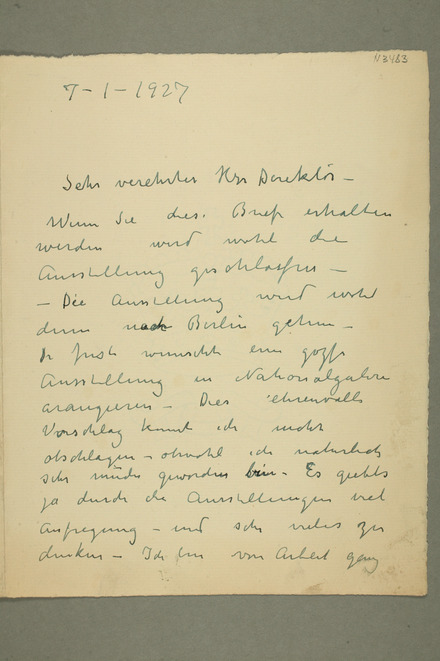 N3483
7-1-1927
Sehr verehrter Herr Direktör –
Wenn Sie dies. Brief erhalten
werden wird wohl die
Ausstellung geschlossen –
– Die Ausstellung wird wohl
dann nach Berlin gehen –
Dr Justi wünscht eine große
Ausstellung in Nationalgalerie
arangieren – Dies ehrenvolle
Vorschlag kannt ich nicht
abschlagen – obwohl ich naturlich
sehr müde geworden bin – Es giebts
ja durch die Ausstellungen viel
Aufregung – und sehr vieles zu
denken – Ich bin von Arbeit ganz